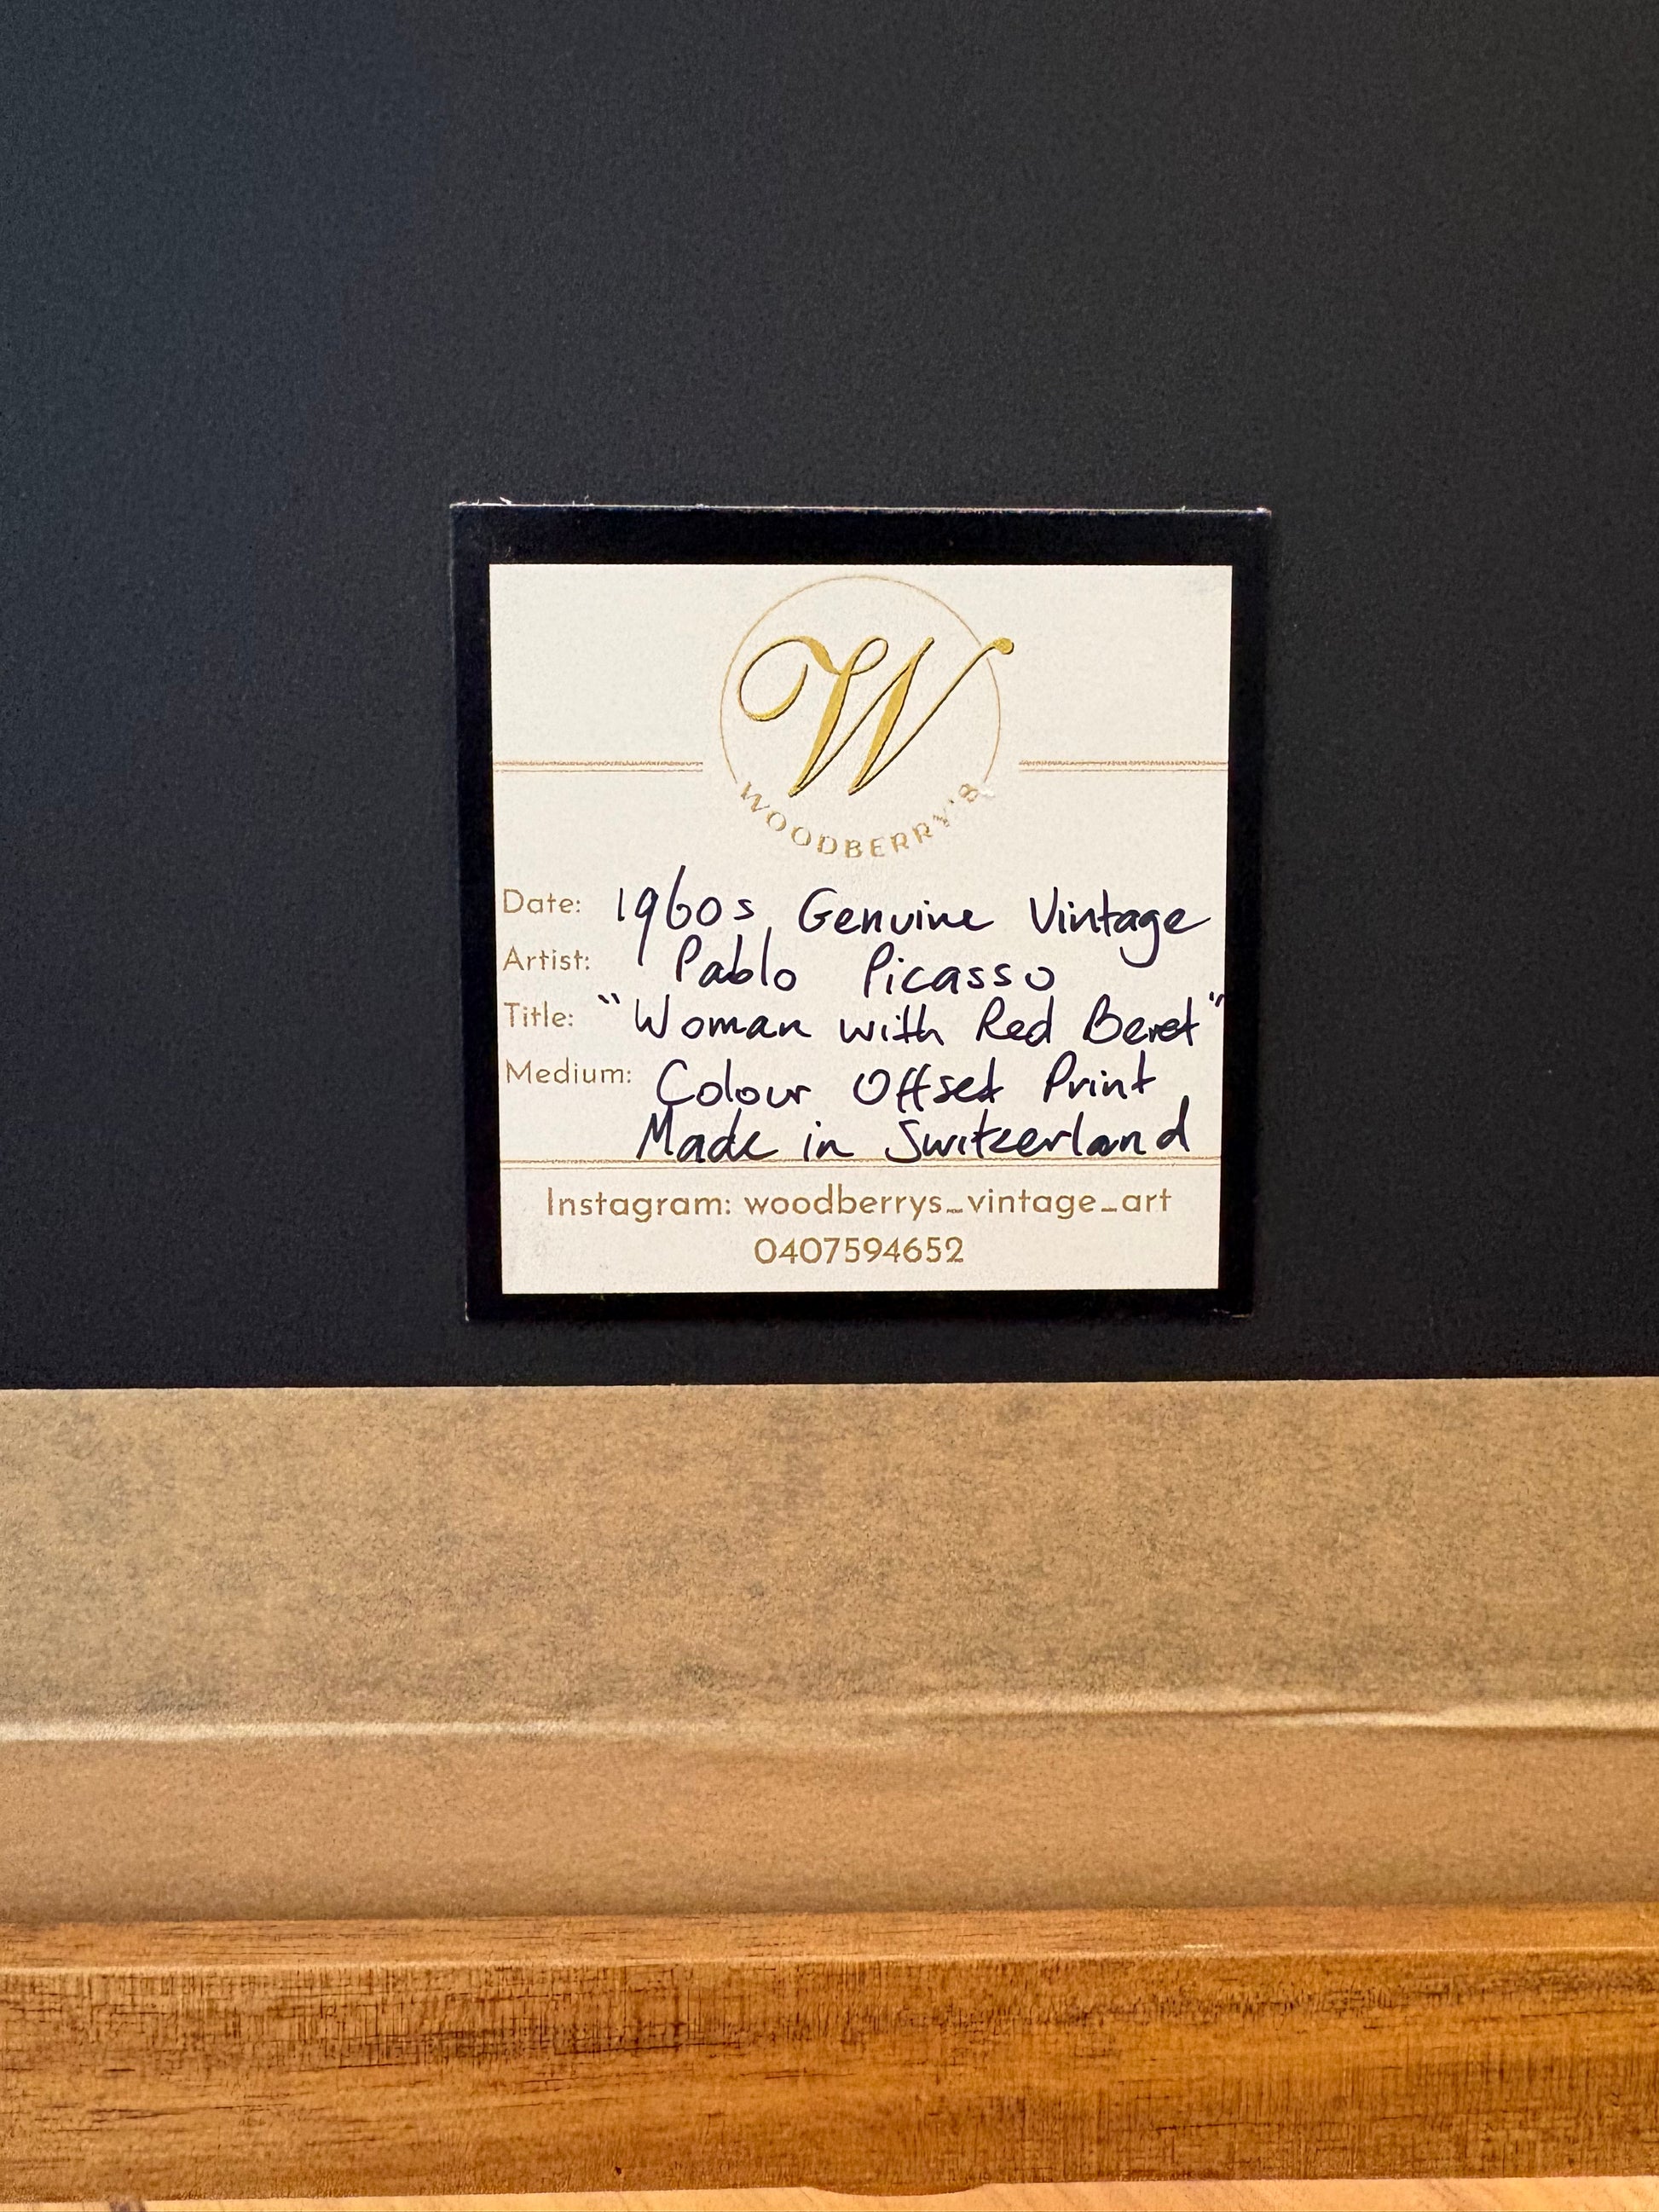 W
WOODBERRY'S
Date: 1960s Genuine Vintage
Artist: Pablo Picasso
Title: "Woman with Red Beret"
Medium: Colour Offset Print
Made in Switzerland
Instagram: woodberrys_vintage_art
0407594652